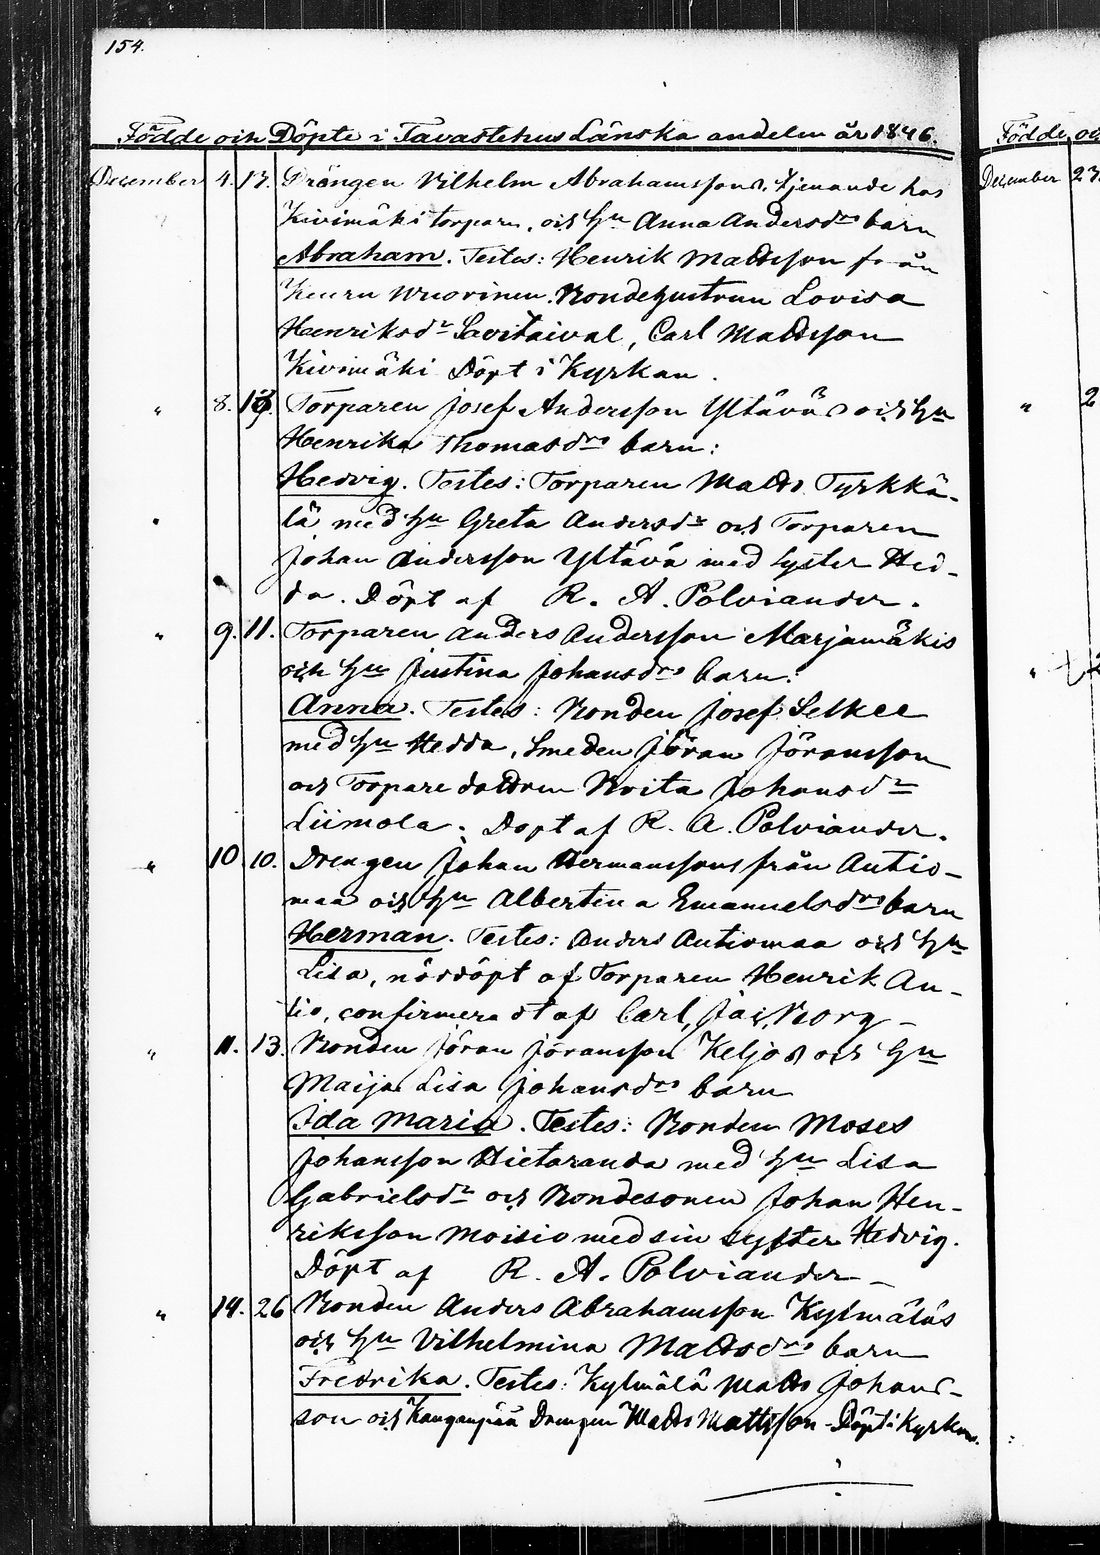 154.
Födde och Döpte i Tavastehus Länska andelen år 1846.
Födde oc
December 4. 17. Drängen Vilhelm Abrahamssons, tjenande hos
December 27.
Kivimäki torpare, och Hu Anna Andersdrs barn
Abraham. Testes: Henrik Mattsson från
Lovisa
Henriksdr Savitaival, Carl Mattsson
Kivimäki Döpt i Kyrkan.
" 8. Torparen Josef Andersson Yltävä s och Hu
" 2
Henrika Thomasdrs barn:
Hedvig. Testes: Torparen Matts Tyrkkä-
lä med Hu Greta Andersdr och Torparen
Johan Andersson Yltävä med Syster Hed-
da. Döpt af R. A. Polviander.
" 9. 11. Torparen Anders Andersson Marjamäkis
och Hu Justina Johansdrs barn:
Anna. Testes: Bonden Josef Seikee
med Hu Hedda, Smeden Jöran Jöransson
och Torpare dottren Brita Johansdr
Liimola. Döpt af R. A. Polviander.
" 10 10. Drengen Johan Hermanssons från Antio-
maa och Hu Albertina Emanuelsdrs barn
Herman. Testes: Anders Antiomaa och Hu
Lisa, nöddöpt af Torparen Henrik An-
tio, confirmerat af Carl Jac. Borg -
" 11. 13. Bonden Jöran Jöransson Keljos och Hu
Maija Lisa Johansdrs barn
Ida Maria. Testes: Bonden Moses
Johansson Hietaranda med Hu Lisa
Gabrielsdr och Bondesonen Johan Hen-
riksson Moisio med sin syster Hedvig.
Döpt af R. A. Polviander -
" 14. 26 Bonden Anders Abrahamsson Kylmäläs
och Hu Vilhelmina Mattsdrs barn
Fredrika. Testes: Kylmälä Matts Johans-
son och Kangaspää Drengen Matts Mattsson - Döpt i Kyrkan.